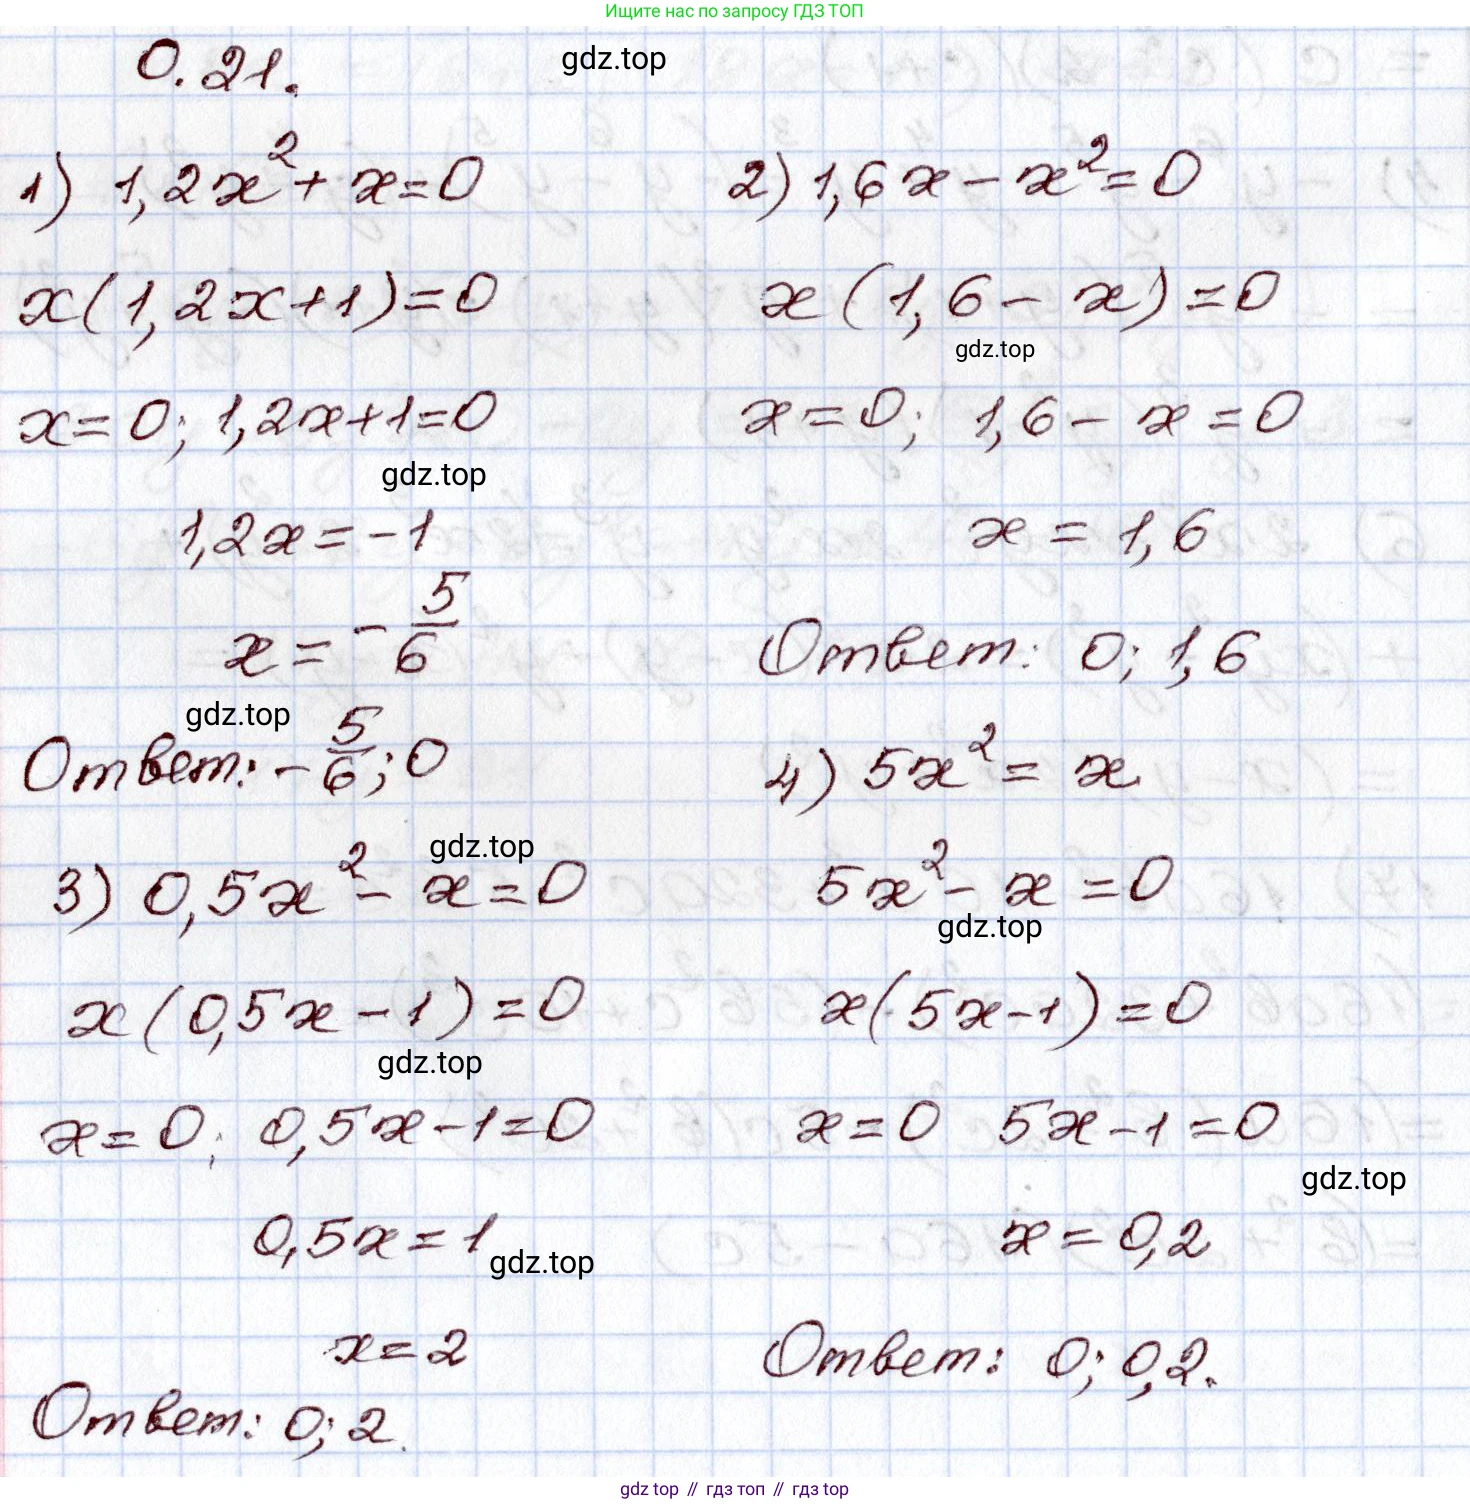 Ищите нас по запросу ГДЗ ТОП
0.21.
gdz.top
1) 1,2x² + x = 0
x(1,2x+1) = 0
x = 0; 1,2x+1=0
gdz.top
1,2x = -1
x = -5/6
gdz.top
Ответ: -5/6; 0
2) 1,6x - x² = 0
x(1,6 - x) = 0
gdz.top
x = 0; 1,6 - x = 0
x = 1,6
Ответ: 0; 1,6
3) 0,5x² - x = 0
gdz.top
x(0,5x - 1) = 0
gdz.top
x = 0; 0,5x - 1 = 0
0,5x = 1
gdz.top
x = 2
Ответ: 0; 2.
4) 5x² = x
5x² - x = 0
gdz.top
x(5x-1) = 0
x = 0 5x - 1 = 0
gdz.top
x = 0,2
Ответ: 0; 0,2.
gdz top // гдз топ // гдз top